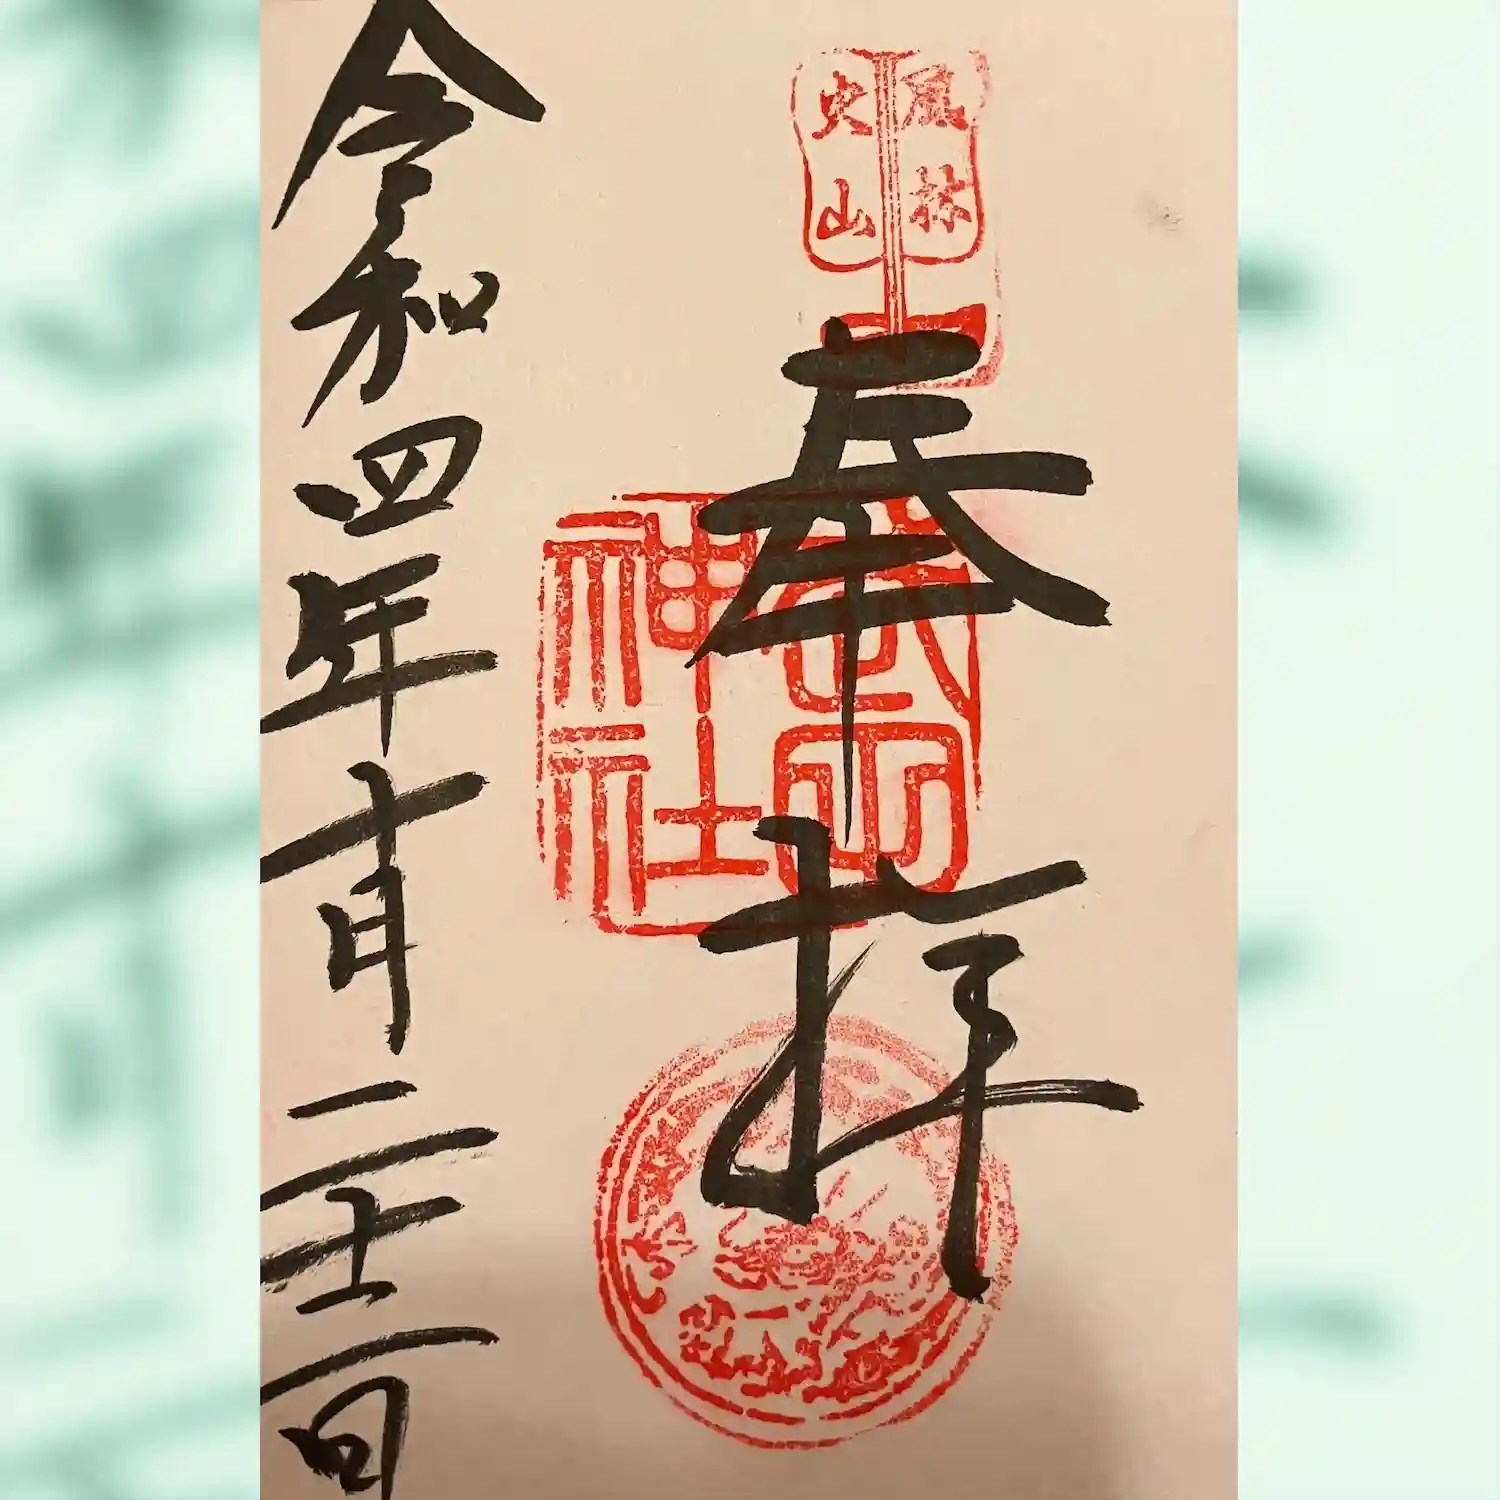 風林
火山
奉拝
武田
神社
令和四年十月二十二日